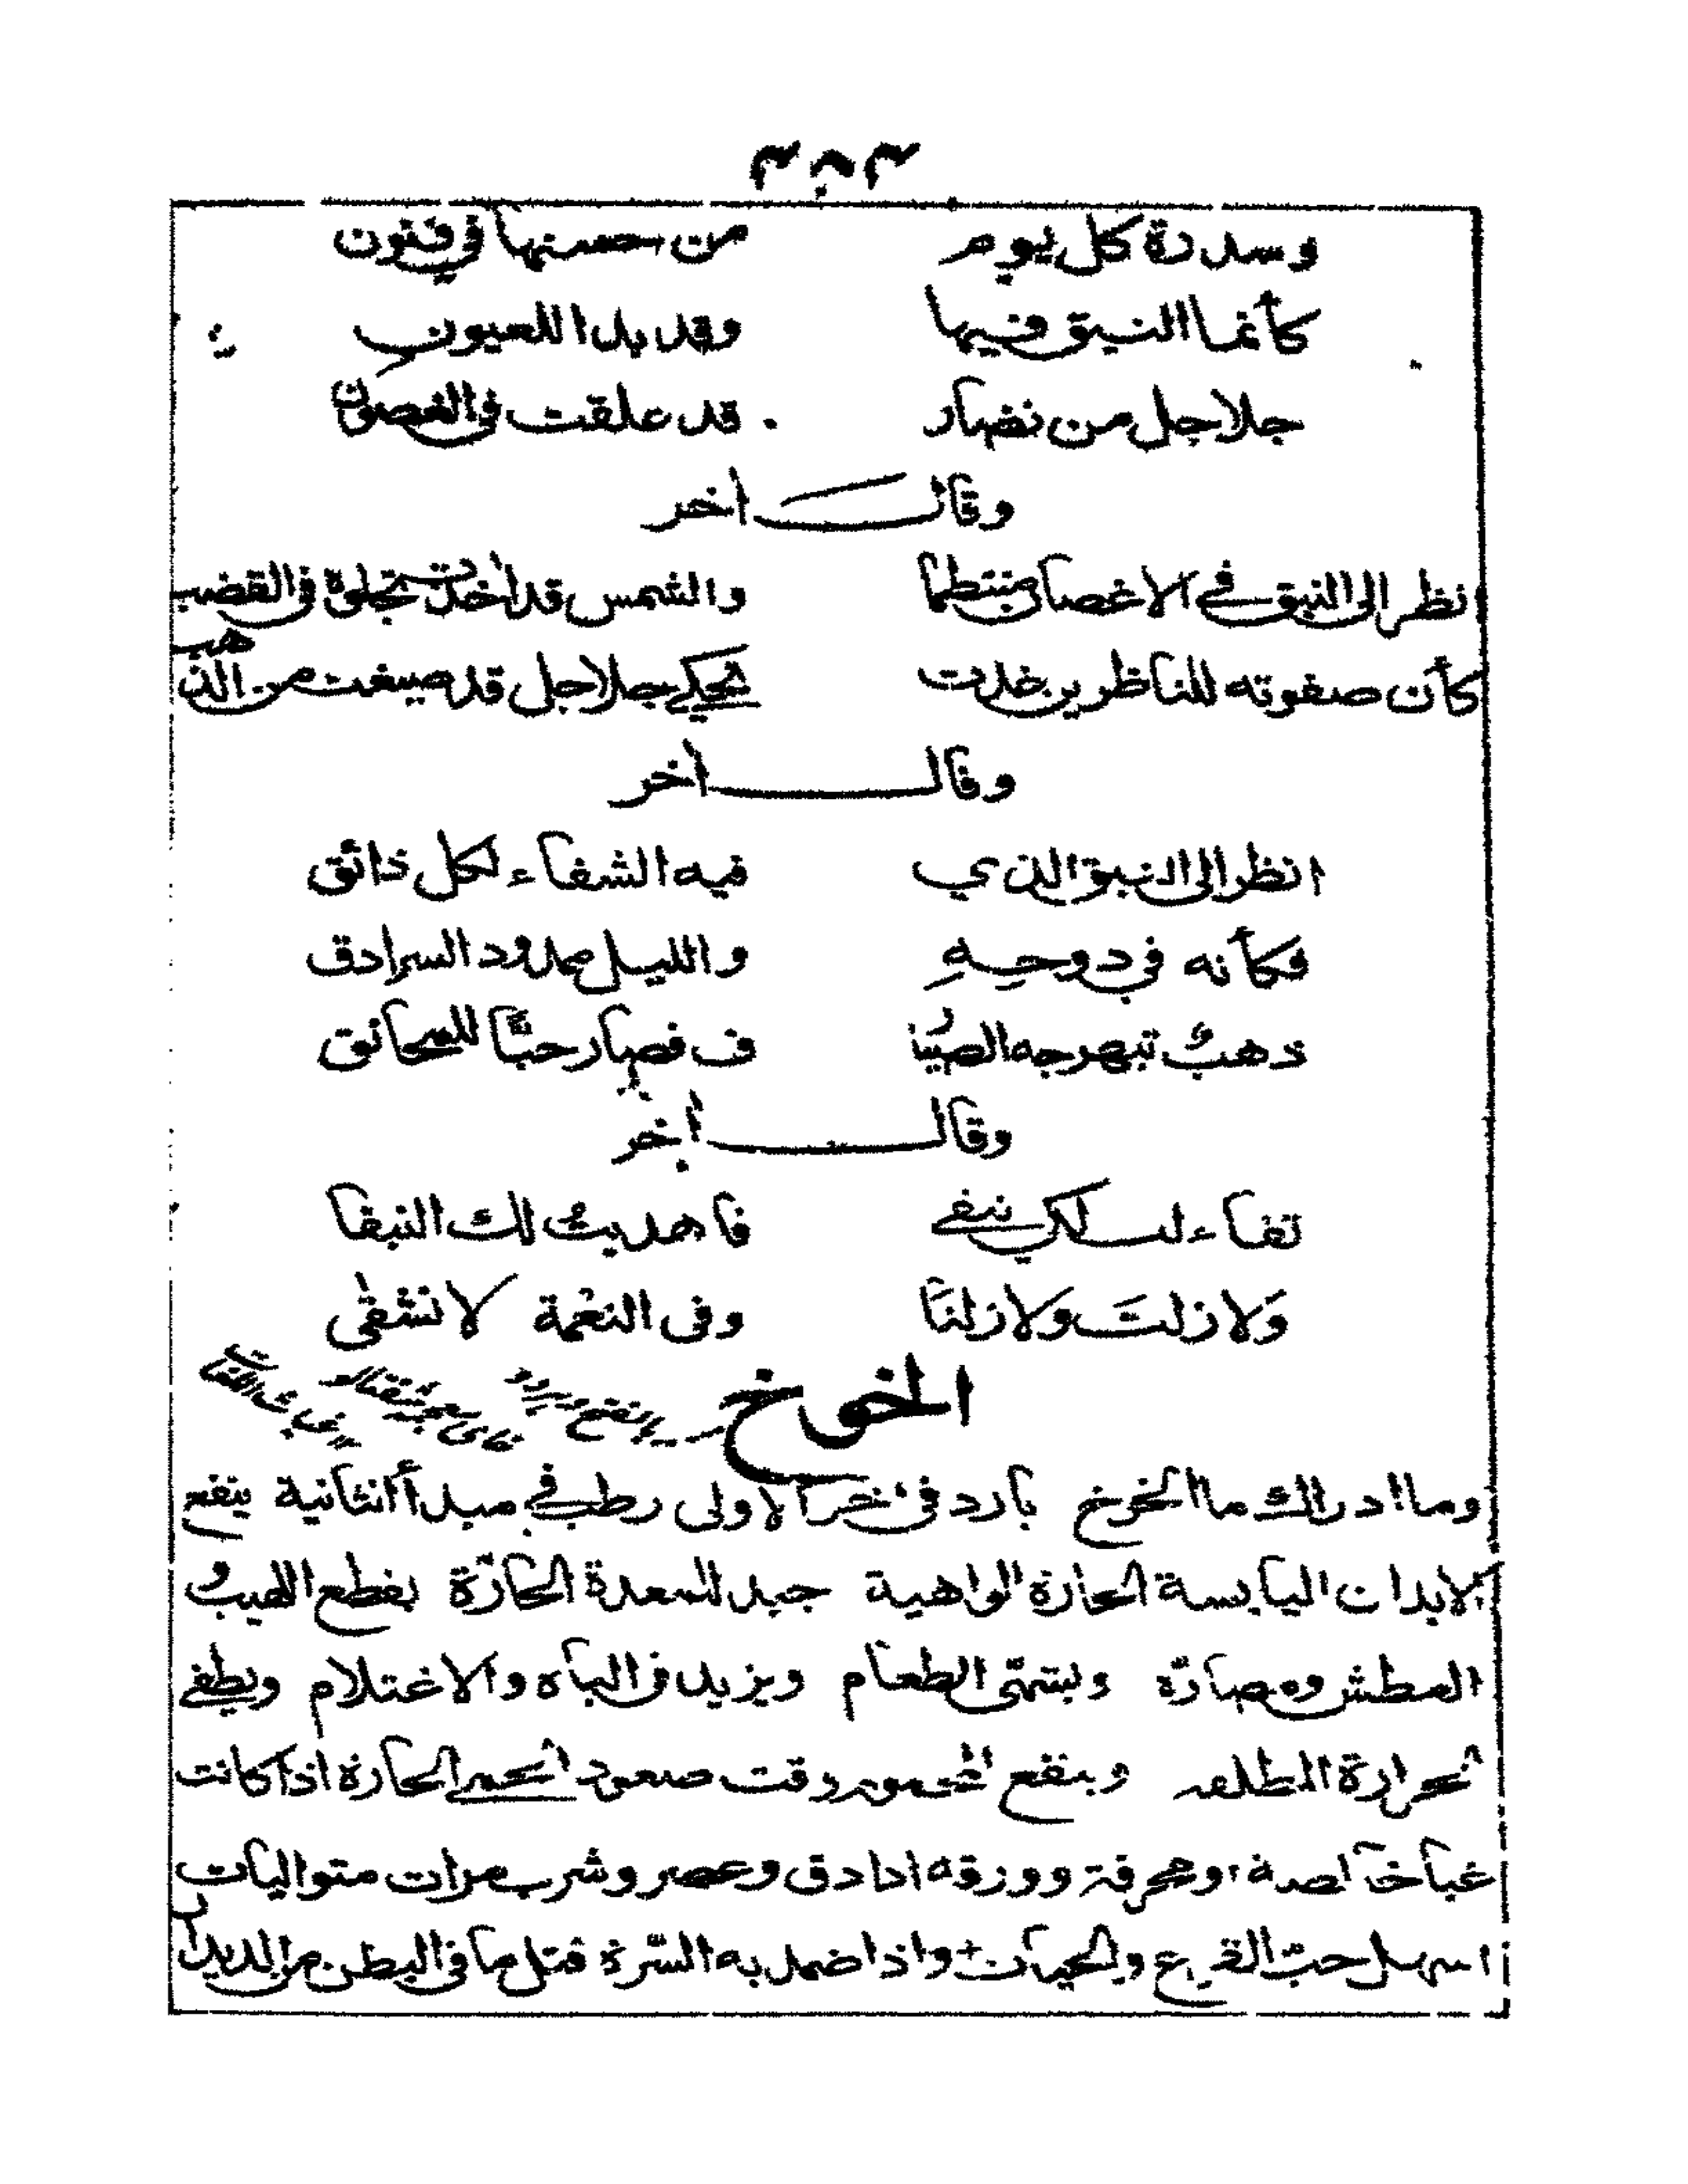 ٣٠٣
وسدرة كل يوم من حسنها في فنون
كأنما النبق فيها وقد بدا للعيون
جلاجل من نضار قد علقت في الغصون
وقال اخر
انظر الى النبق في الاغصان منتظما والشمس قد اخذت تجلوه في القضب
كأن صفوته للناظرين غدت تحكي جلاجل قد صيغت من الذهب
وقال اخر
انظر الى النبق الذي فيه الشفاء لكل ذائق
فكأنه في دوحهِ والليل ممدود السرادق
ذهبٌ تبهرجه الصيا رف فصار حبًّا للمخانق
وقال اخر
تفاءلت لكي نبقى فاهديتُ لك النبقا
وَلا زلتَ ولا زلنَا وفى النعْمة لا نشقٰى
الخوخ
وما ادراك ما الخوخ بارد في اخر الاولى رطب في مبدأ الثانية ينفع
الابدان اليابسة الحارة الواهية جيد للمعدة الحارّة يقطع اللهيب و
العطش ومضارّه ويشهّي الطعام ويزيد في الباه والاغتلام ويطفي
الحرارة وينفع المحموم وقت صعود الحمى الحارة اذا كانت
غبا خالصة او محرقة وورقه اذا دق وعصر وشرب مرات متواليات
اسهل حبّ القرع والحيات واذا ضمد به السّرة قتل ما في البطن من الديدان